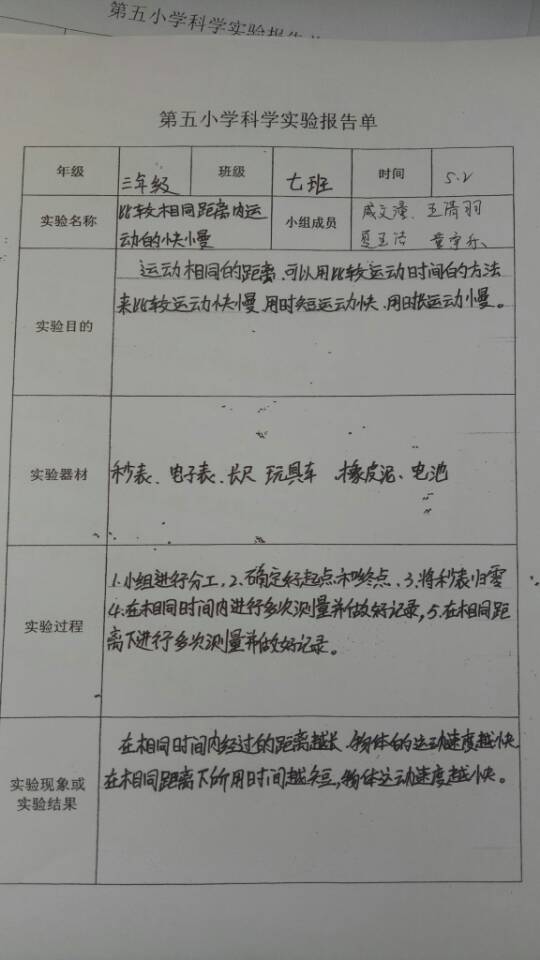 第五小学科学实验报告单
第五小学科学实验报告单
年级 三年级 班级 七班 时间 5.2
实验名称 比较相同距离内运动的快慢 小组成员
实验目的
运动相同的距离，可以用比较运动时间的方法
来比较运动快慢，用时短运动快，用时长运动慢。
实验器材 秒表、电子表、长尺 玩具车、橡皮泥、电池
实验过程
1.小组进行分工，2.确定好起点和终点，3.将秒表归零
4.在相同时间内进行多次测量并做好记录，5.在相同距
离下进行多次测量并做好记录。
实验现象或
实验结果
在相同时间内经过的距离越长，物体的运动速度越快
在相同距离下所用时间越短，物体运动速度越快。